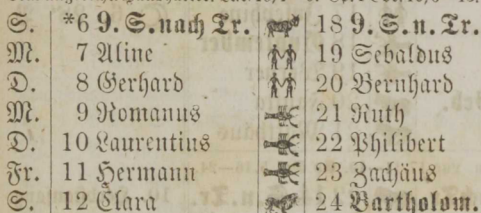 S. *6 9. S. nach Tr. 18 9. S. n. Tr.
M. 7 Aline 19 Sebaldus
D. 8 Gerhard 20 Bernhard
M. 9 Romanus 21 Ruth
D. 10 Laurentius 22 Philibert
Fr. 11 Hermann 23 Zachäus
S. 12 Clara 24 Bartholom.